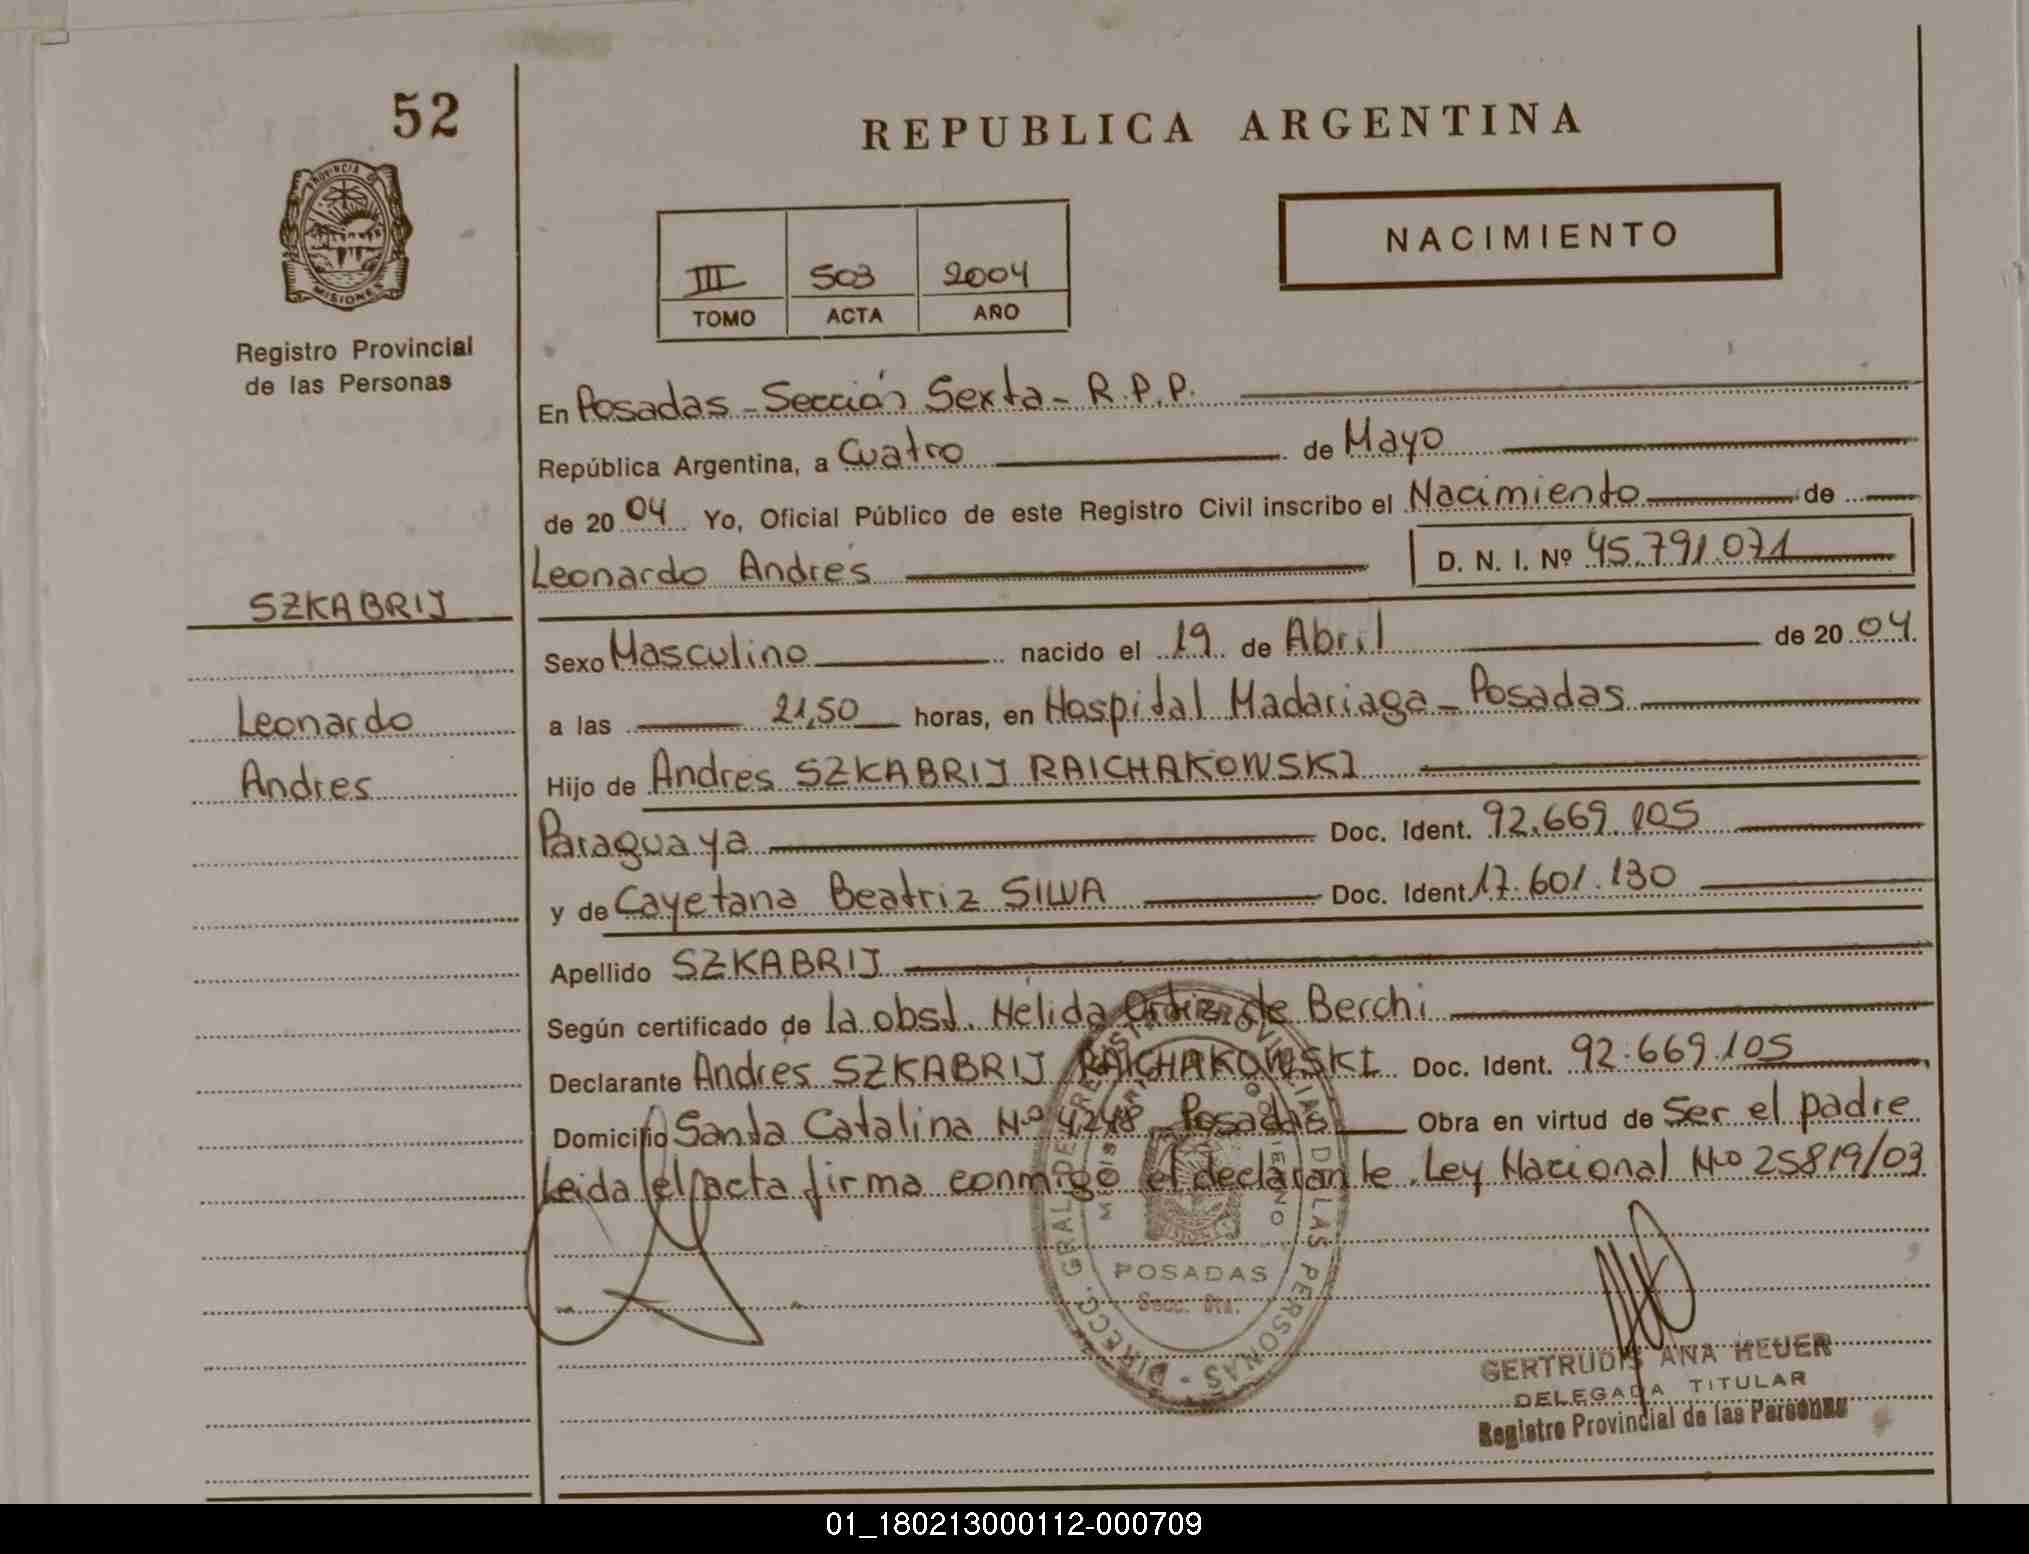 52
REPUBLICA ARGENTINA
PROVINCIA D
MISIONES
Registro Provincial
de las Personas
NACIMIENTO
III 503 2004
TOMO ACTA AÑO
En Posadas - Sección Sexta - R.P.P.
República Argentina, a Cuatro de Mayo
de 20 04 Yo, Oficial Público de este Registro Civil inscribo el Nacimiento de
Leonardo Andrés D. N. I. Nº 45.791.071
SZKABRIJ
Leonardo
Andres
Sexo Masculino nacido el 19 de Abril de 20 04.
a las 21,50 horas, en Hospital Madariaga - Posadas
Hijo de Andres SZKABRIJ RAICHAKOWSKI
Paraguaya Doc. Ident. 92.669.105
y de Cayetana Beatriz SILVA Doc. Ident. 17.601.130
Apellido SZKABRIJ
Según certificado de la obst. Nélida Ortiz de Berchi
Declarante Andres SZKABRIJ RAICHAKOWSKI Doc. Ident. 92.669.105
Domicilio Santa Catalina Nº 4248 - Posadas Obra en virtud de Ser el padre
Leida el acta firma conmigo el declarante. Ley Nacional Nº 25819/03
DIRECC. GRAL. DE REGISTRO PROVINCIAL DE LAS PERSONAS
POSADAS
Secc. 6ta.
GERTRUDIS ANA HEUER
DELEGADA TITULAR
Registro Provincial de las Personas
01_180213000112-000709